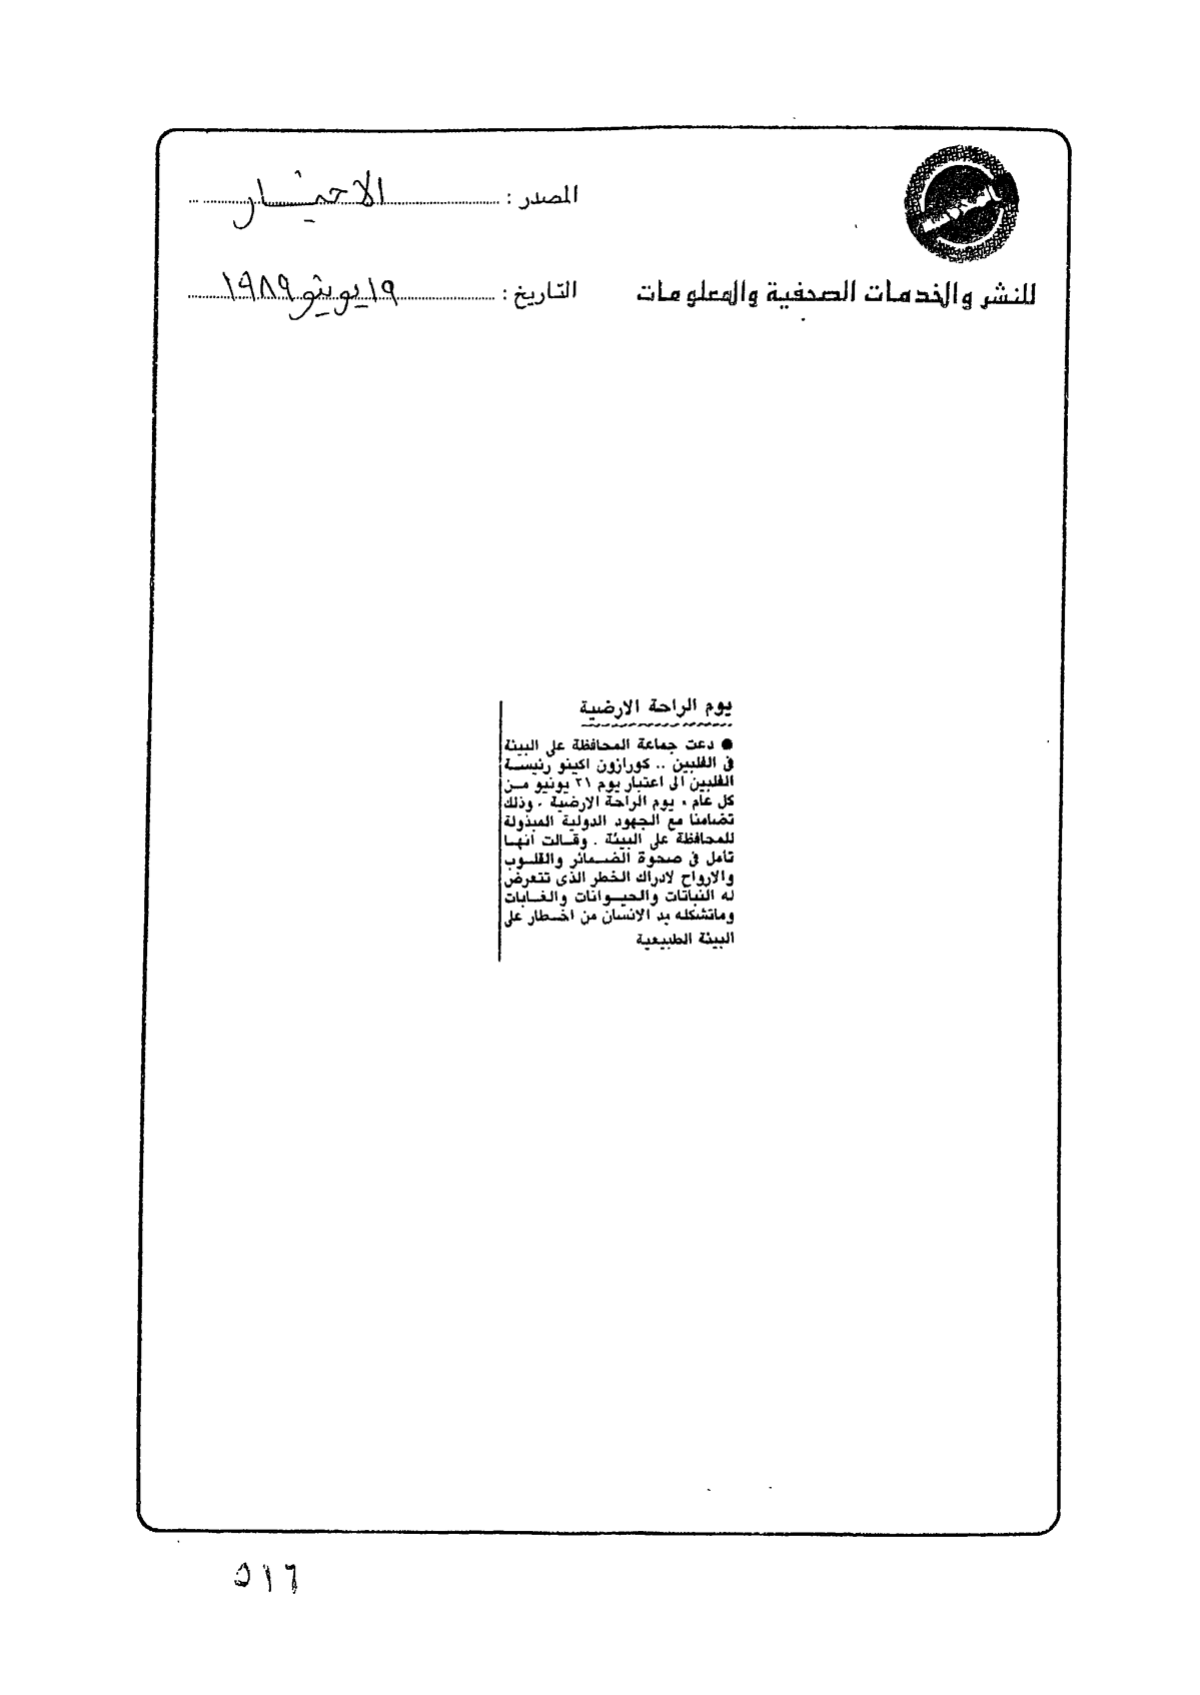 المصدر : الاخبار
للنشر والخدمات الصحفية والمعلومات
التاريخ : ١٩ يونيو ١٩٨٩
يوم الراحة الارضية
● دعت جماعة المحافظة على البيئة
فى الفلبين .. كورازون اكينو رئيسة
الفلبين الى اعتبار يوم ٢١ يونيو من
كل عام ، يوم الراحة الارضية ، وذلك
تضامنا مع الجهود الدولية المبذولة
للمحافظة على البيئة . وقالت انها
تأمل فى صحوة الضمائر والقلوب
والارواح لادراك الخطر الذى تتعرض
له النباتات والحيوانات والغابات
وماتشكله يد الانسان من اخطار على
البيئة الطبيعية
٥١٦